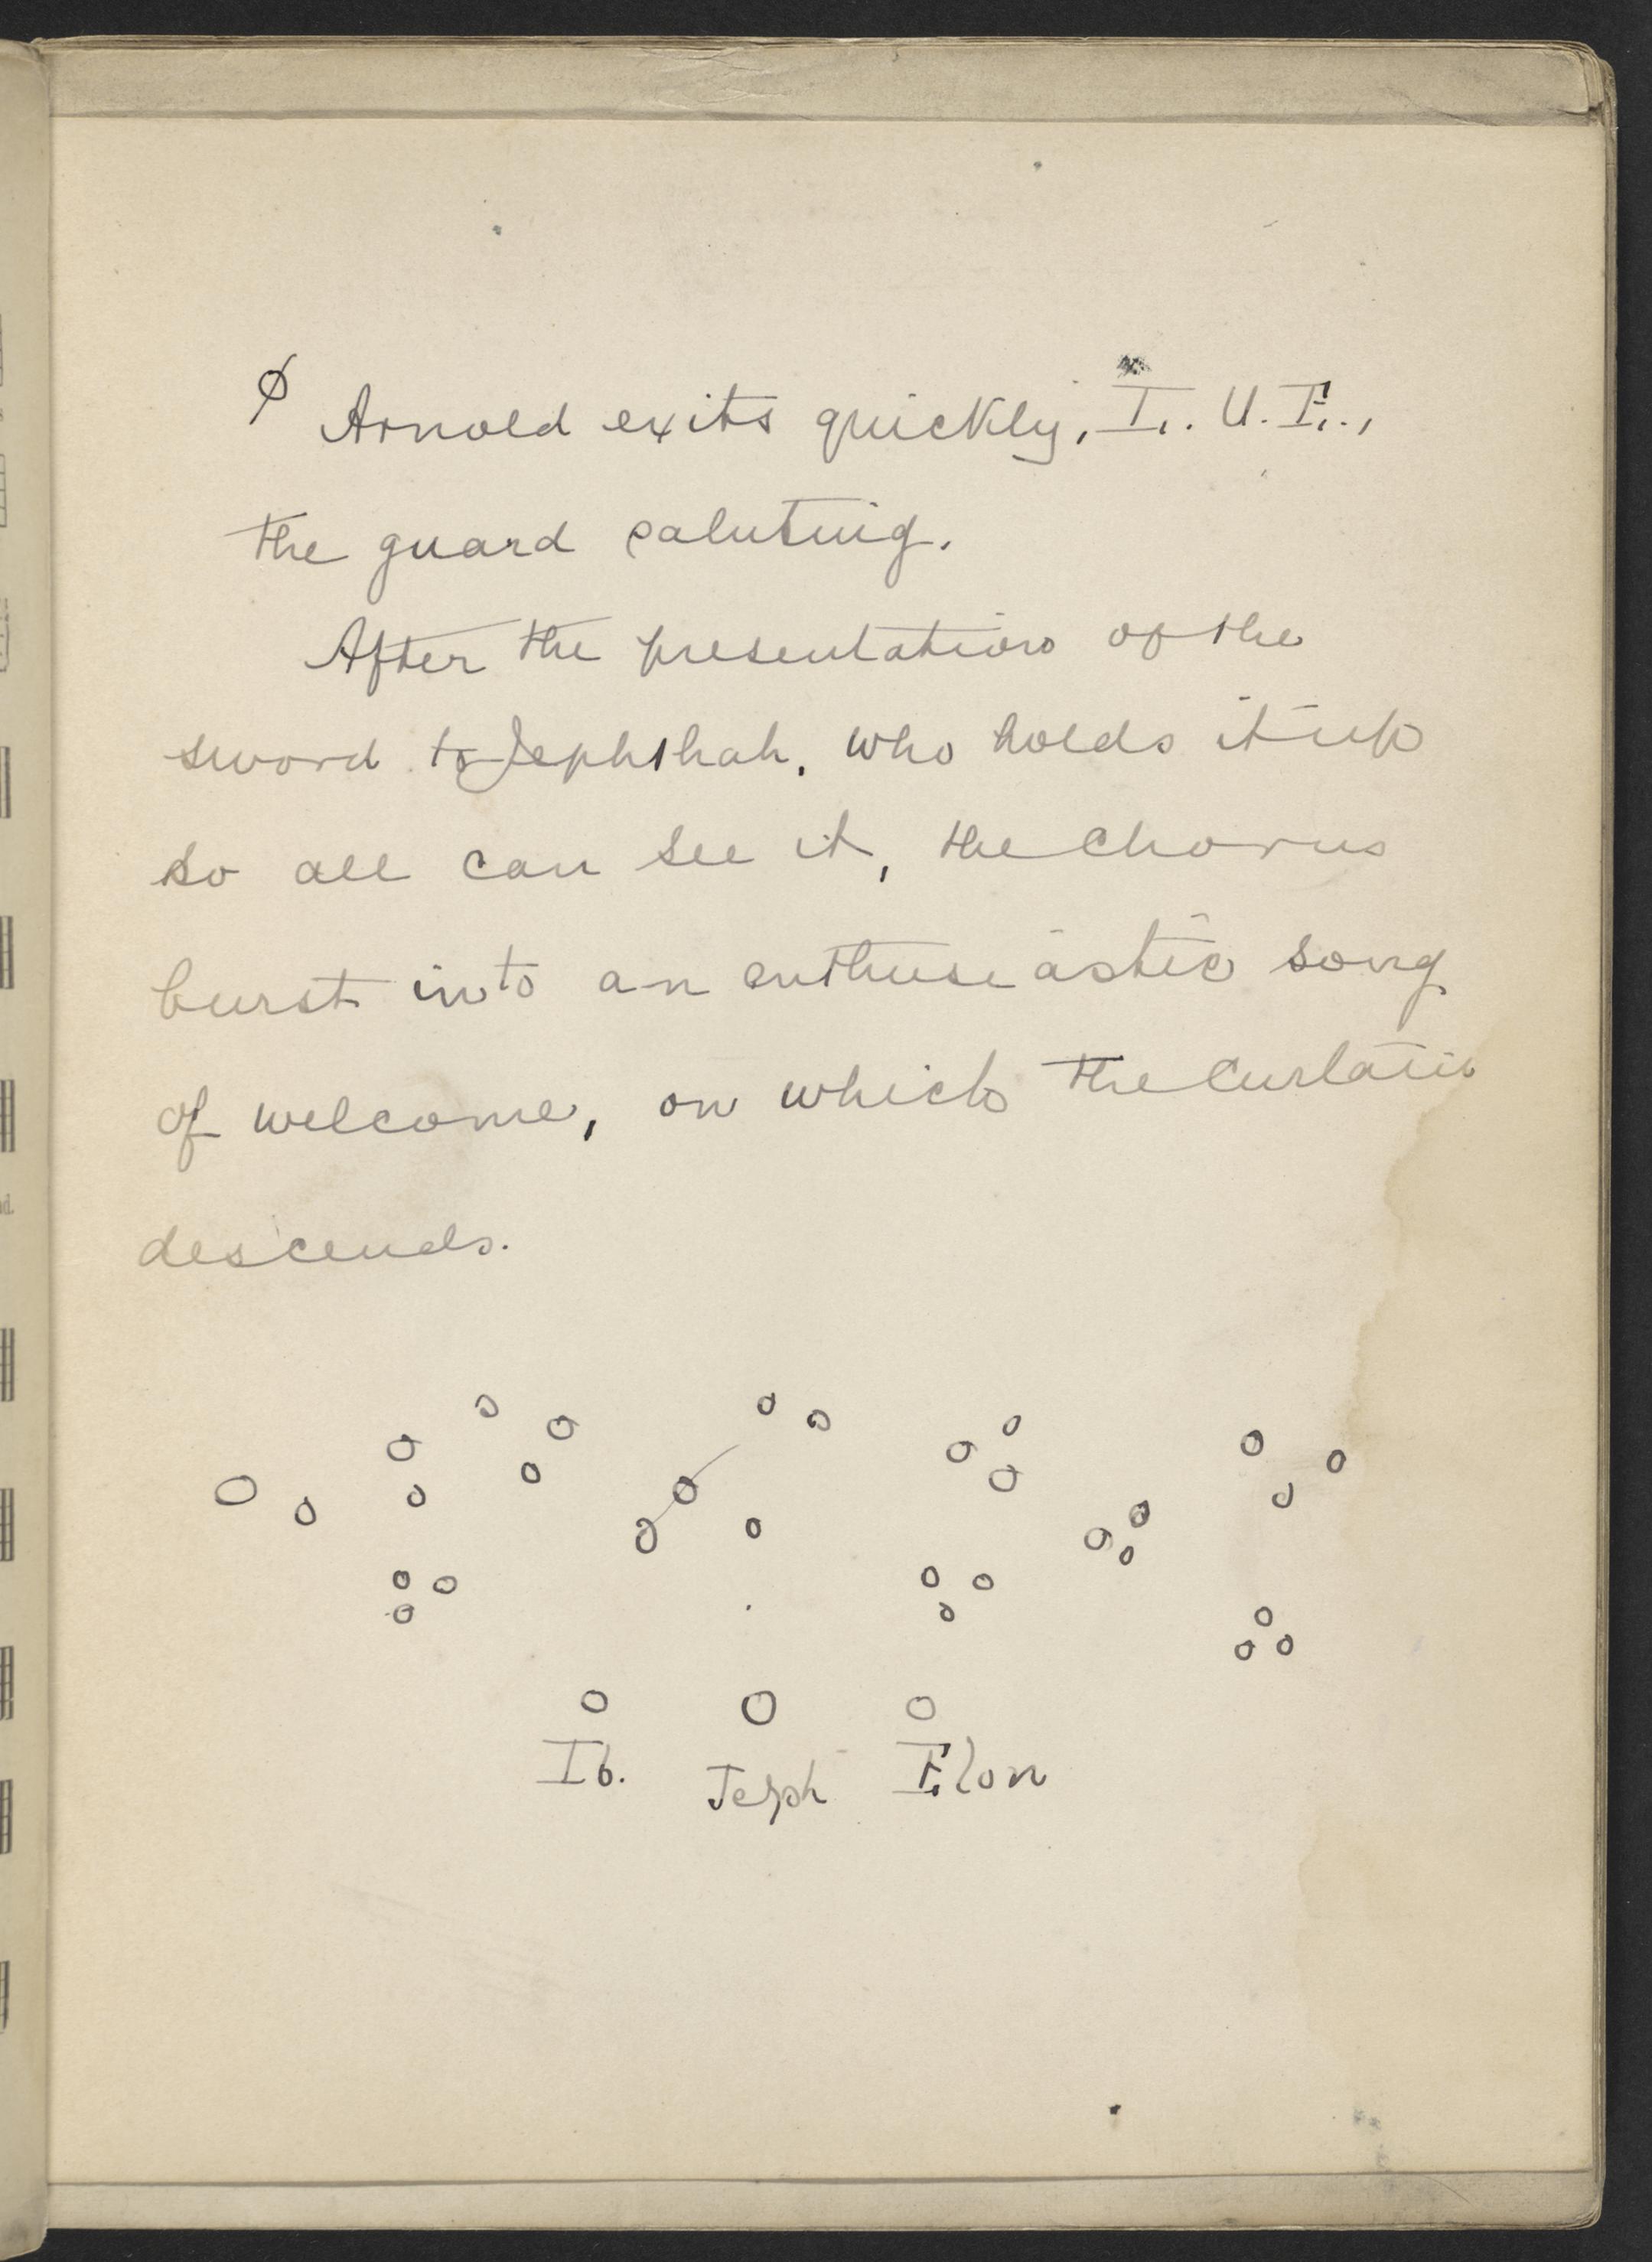 Ø Arnold exits quickly, L. U. E.,
the guard saluting.
After the presentation of the
sword to Jephthah, who holds it up
so all can see it, the chorus
burst into an enthusiastic song
of welcome, on which the curtain
descends.
Ib. Jeph Elon